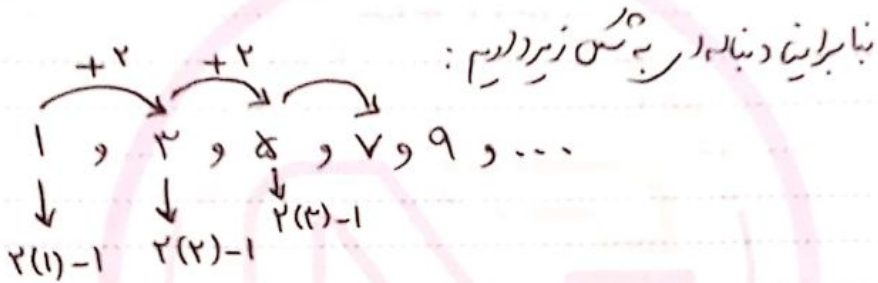 بنابراین دنباله‌ای به شکل زیر داریم :
+۲ +۲
۱ , ۳ , ۵ , ۷ , ۹ , ...
۲(۱)-۱ ۲(۲)-۱ ۲(۳)-۱